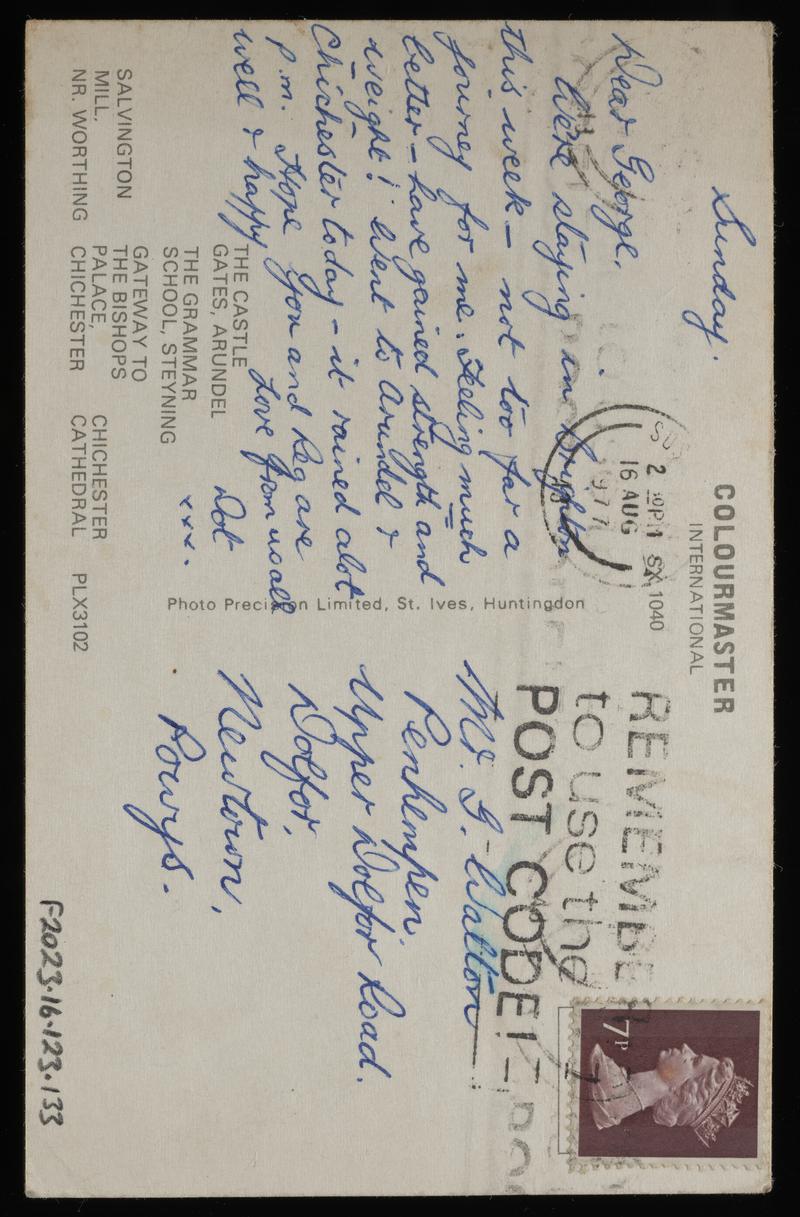 COLOURMASTER
INTERNATIONAL
Sunday.
Dear George,
We're staying in Brighton
this week - not too far a
journey for me. Feeling much
better - have gained strength and
weight! Went to Arundel &
Chichester today - it rained alot
p.m. Hope you and Reg are
well & happy
Love from us all
Dot
xxx.
SALVINGTON
MILL,
NR. WORTHING
THE CASTLE
GATES, ARUNDEL
THE GRAMMAR
SCHOOL, STEYNING
GATEWAY TO
THE BISHOPS
PALACE,
CHICHESTER
CHICHESTER
CATHEDRAL
PLX3102
Photo Precision Limited, St. Ives, Huntingdon
2 30PM SX 1040
16 AUG
1977
REMEMBER
to use the
POST CODE!
7P
Mr. G. Walton
Penhempen,
Upper Dolfor Road.
Dolfor,
Newtown,
Powys.
F2023.16.123.133